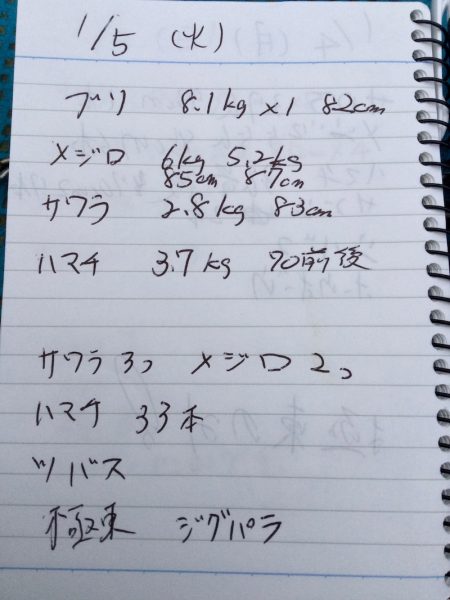 1/5 (火)
ブリ 8.1kg x1 82cm
メジロ 6kg 5.2kg
85cm 87cm
サワラ 2.8kg 83cm
ハマチ 3.7kg 70前後
サワラ 3つ メジロ 2つ
ハマチ 33本
ツバス
極東 ジグパラ